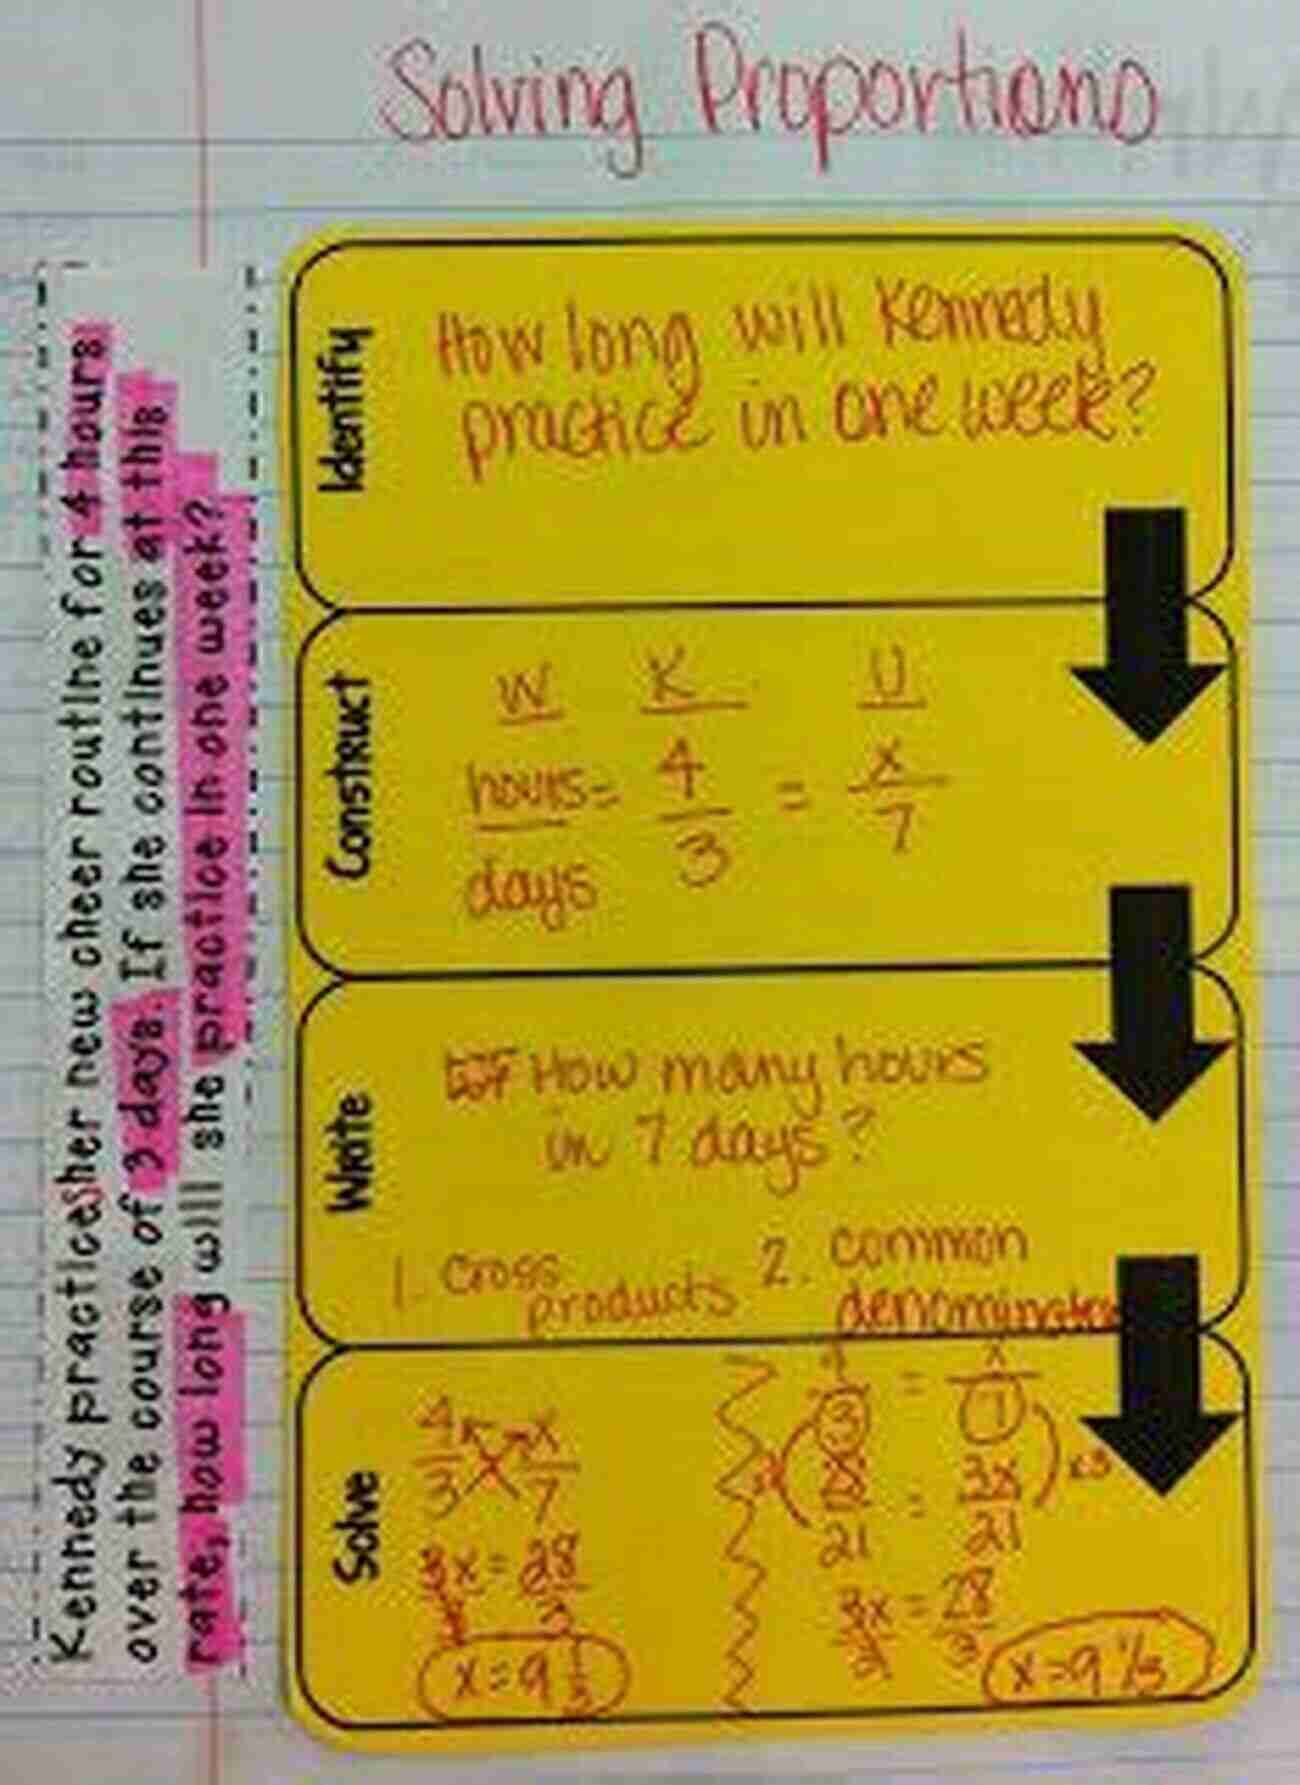 Solving Proportions
Kennedy practices her new cheer routine for 4 hours
over the course of 3 days. If she continues at this
rate, how long will she practice in one week?
Identify
How long will Kennedy
practice in one week?
Construct
W K U
hours = 4/3 = x/7
days
Write
How many hours
in 7 days?
1. Cross products
2. common denominator
Solve
4/3 x/7
3x = 28
3 3
x = 9 1/3
4/3 = x/7
28/21 = 3x/21
x3
3x/3 = 28/3
x = 9 1/3